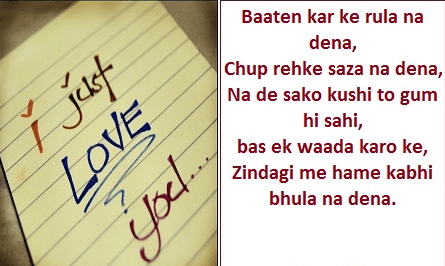 i just
LOVE
you...
Baaten kar ke rula na
dena,
Chup rehke saza na dena,
Na de sako kushi to gum
hi sahi,
bas ek waada karo ke,
Zindagi me hame kabhi
bhula na dena.